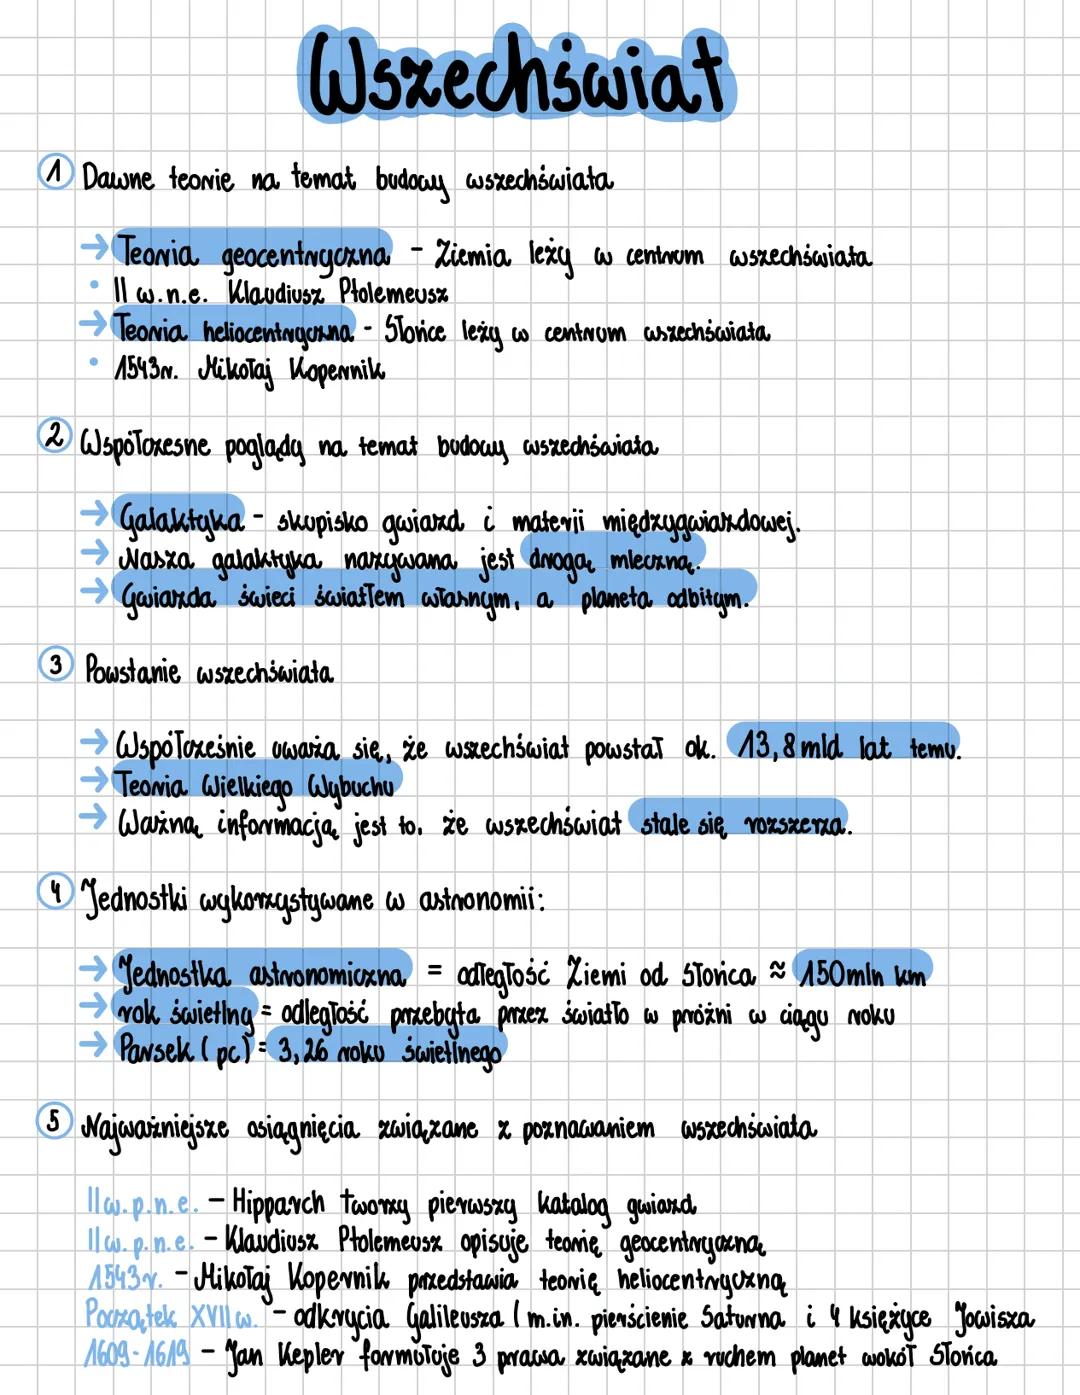 Wszechświat
1 Dawne teorie na temat budowy wszechświata
→ Teoria geocentryczna - Ziemia leży w centrum wszechświata
• II w.n.e. Klaudiusz Ptolemeusz
→ Teoria heliocentryczna - Słońce leży w centrum wszechświata
• 1543r. Mikołaj Kopernik
2 Współczesne poglądy na temat budowy wszechświata
→ Galaktyka - skupisko gwiazd i materii międzygwiazdowej.
→ Nasza galaktyka nazywana jest drogą mleczną.
→ Gwiazda świeci światłem własnym, a planeta odbitym.
3 Powstanie wszechświata
→ Współcześnie uważa się, że wszechświat powstał ok. 13,8 mld lat temu.
→ Teoria Wielkiego Wybuchu
→ Ważną informacją jest to, że wszechświat stale się rozszerza.
4 Jednostki wykorzystywane w astronomii:
→ Jednostka astronomiczna = odległość Ziemi od Słońca ≈ 150mln km
→ rok świetlny = odległość przebyta przez światło w próżni w ciągu roku
→ Parsek (pc) = 3,26 roku świetlnego
5 Najważniejsze osiągnięcia związane z poznawaniem wszechświata
II w.p.n.e. - Hipparch tworzy pierwszy katalog gwiazd
II w.p.n.e. - Klaudiusz Ptolemeusz opisuje teorię geocentryczną
1543r. - Mikołaj Kopernik przedstawia teorię heliocentryczną
Początek XVII w. - odkrycia Galileusza (m.in. pierścienie Saturna i 4 księżyce Jowisza
1609-1619 - Jan Kepler formułuje 3 prawa związane z ruchem planet wokół Słońca